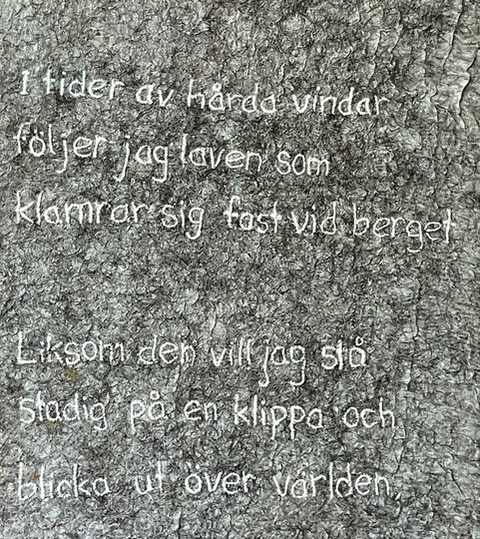 I tider av hårda vindar
följer jag laven som
klamrar sig fast vid berget
Liksom den vill jag stå
stadig på en klippa och
blicka ut över världen